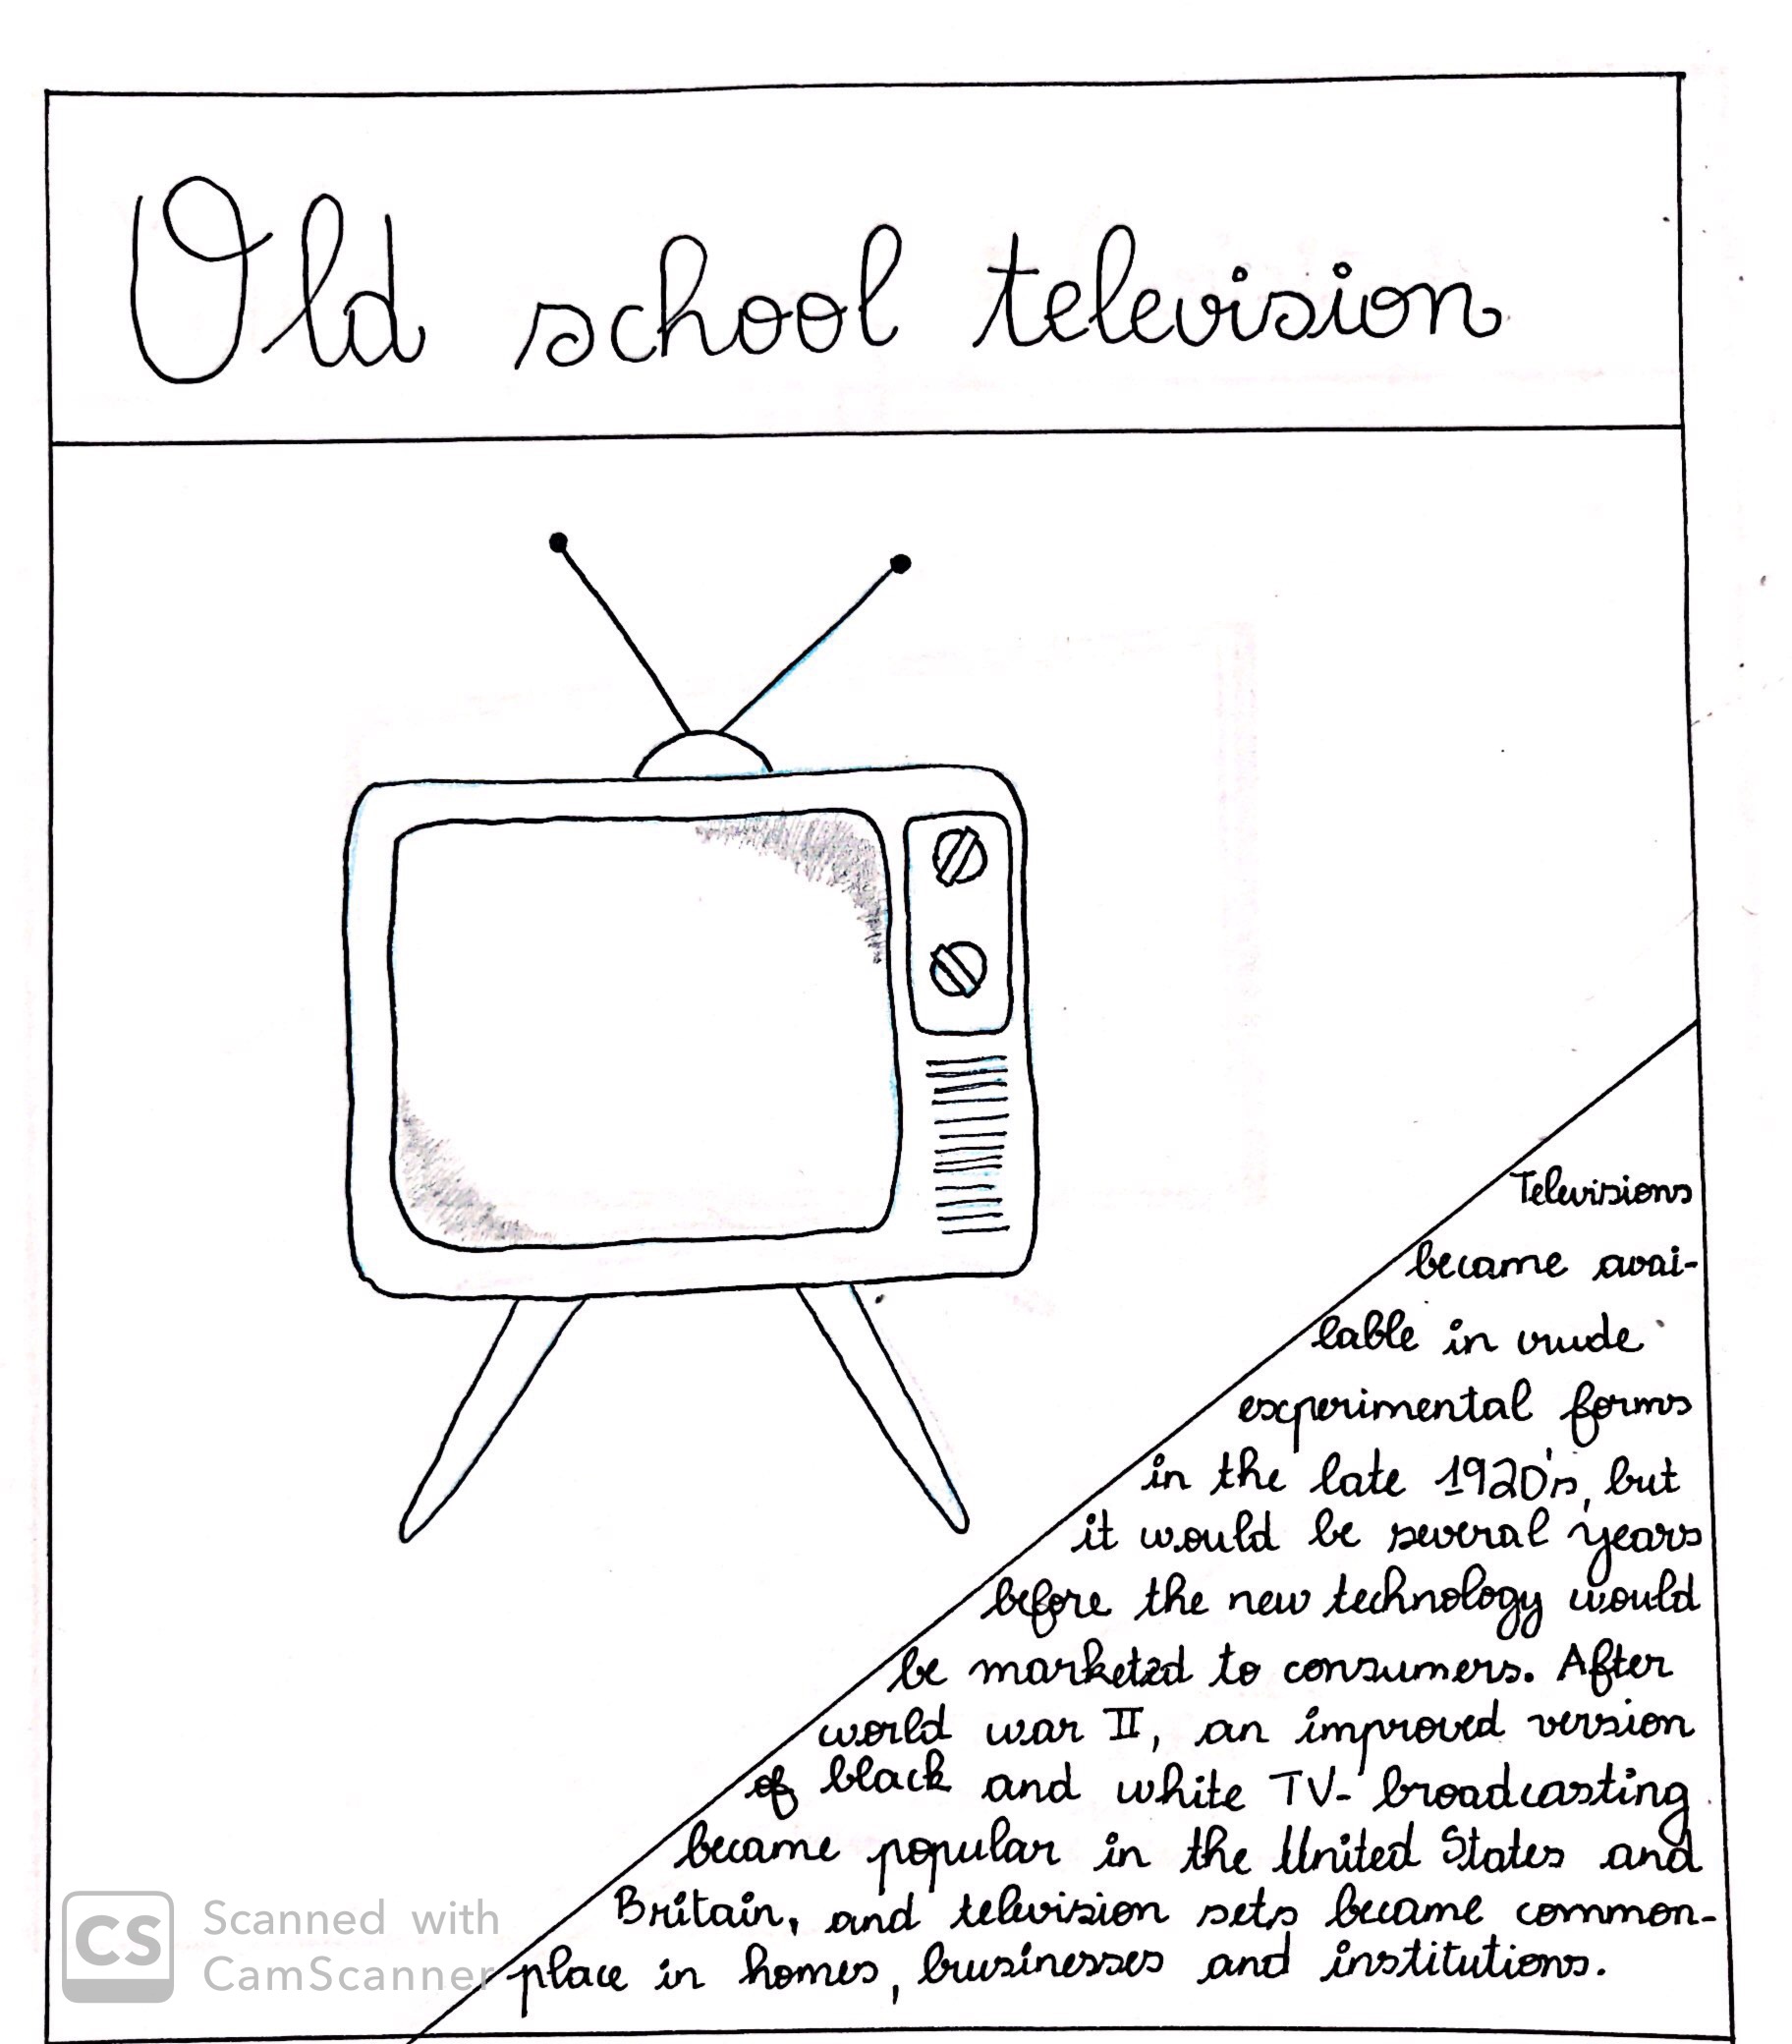 Old school television
Televisions
became avai-
lable in crude
experimental forms
in the late 1920's, but
it would be several years
before the new technology would
be marketed to consumers. After
world war II, an improved version
of black and white TV- broadcasting
became popular in the United States and
Britain, and television sets became common-
place in homes, businesses and institutions.
CS Scanned with
CamScanner